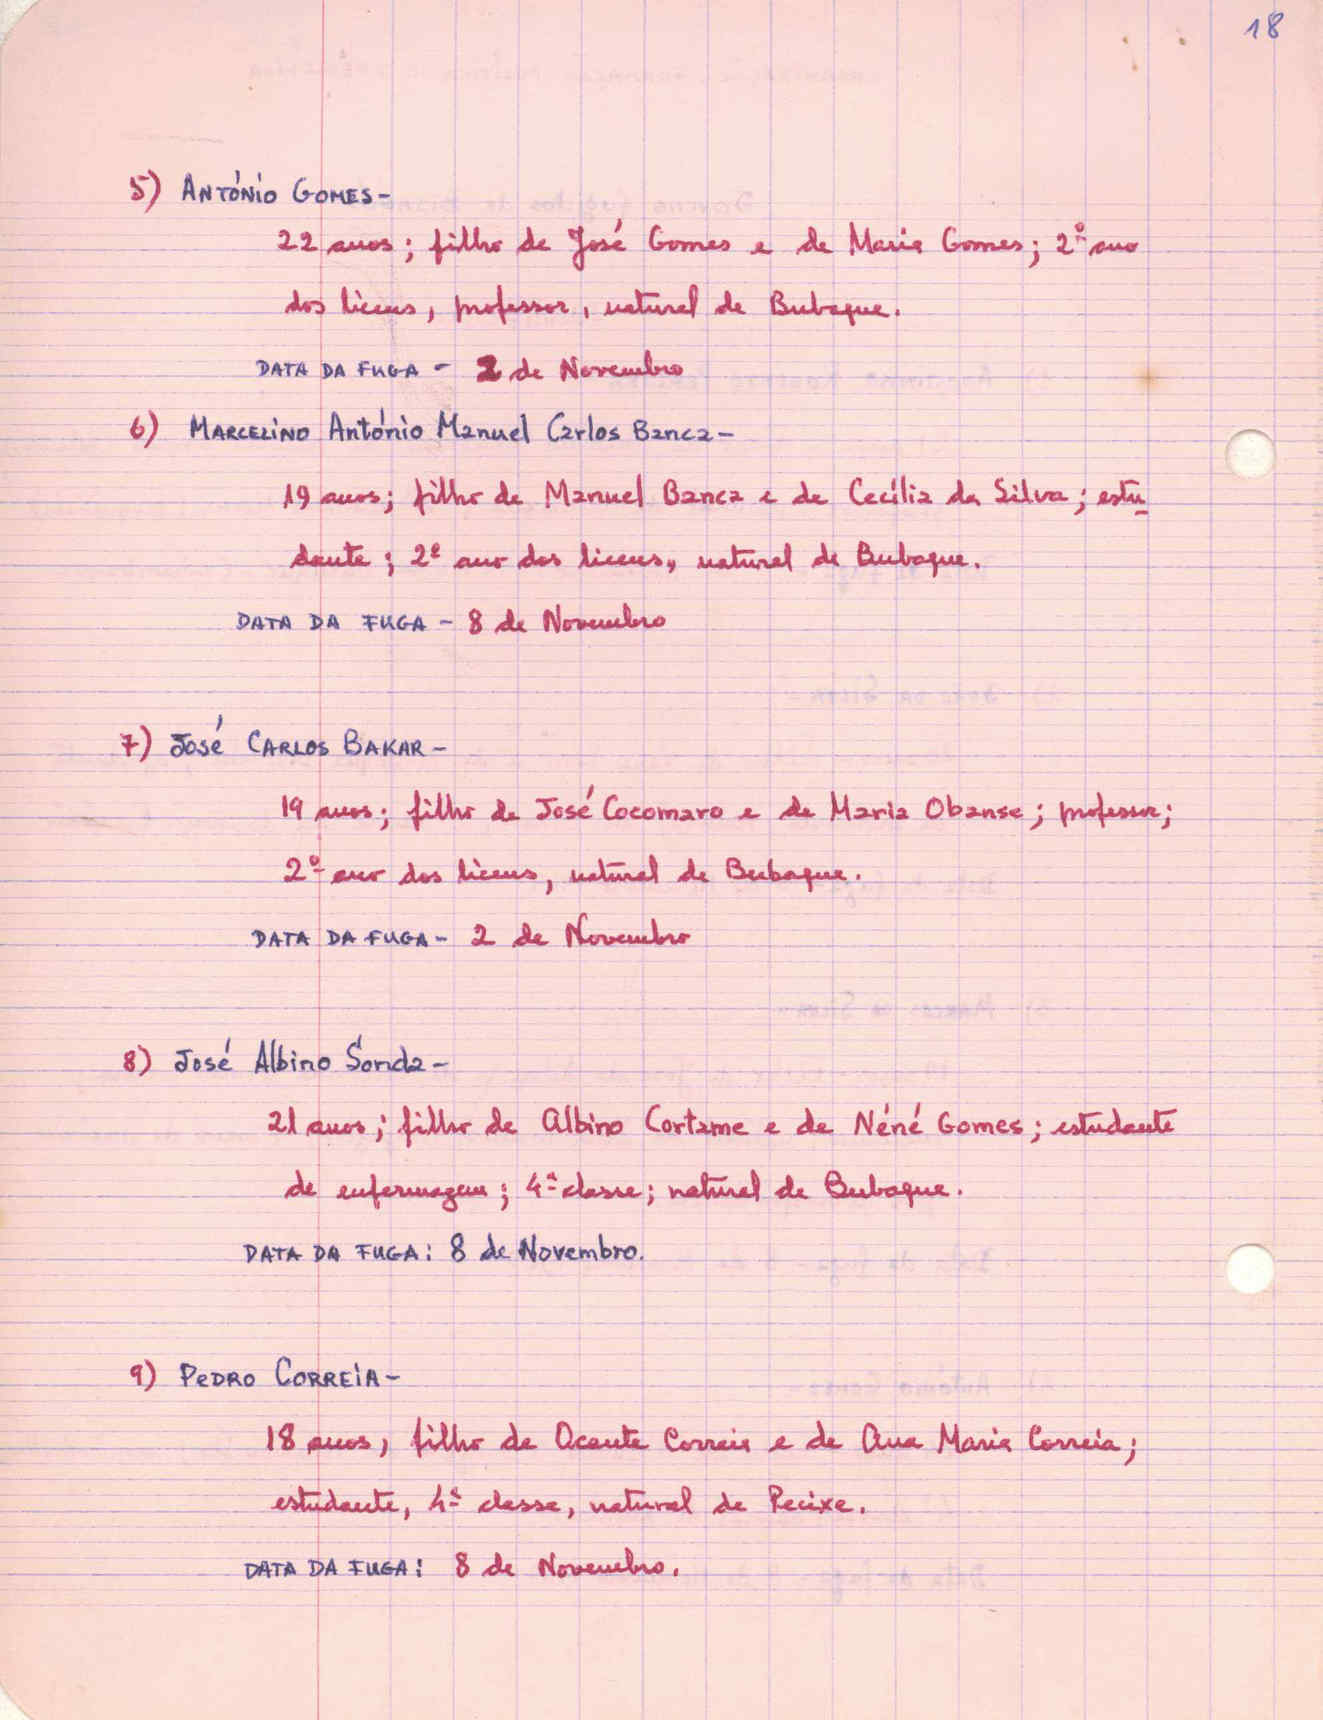 18
5) ANTÓNIO GOMES-
22 anos; filho de José Gomes e de Maria Gomes; 2º ano
dos liceus, professor, natural de Bubaque.
DATA DA FUGA - 2 de Novembro
6) MARCELINO António Manuel Carlos Banca-
19 anos; filho de Manuel Banca e de Cecília da Silva; estu
dante; 2º ano dos liceus, natural de Bubaque.
DATA DA FUGA - 8 de Novembro
7) José CARLOS BAKAR-
19 anos; filho de José Cocomaro e de Maria Obanse; professor;
2º ano dos liceus, natural de Bubaque.
DATA DA FUGA - 2 de Novembro
8) José Albino Sonda-
21 anos; filho de Albino Cortame e de Néné Gomes; estudante
de enfermagem; 4ª classe; natural de Bubaque.
DATA DA FUGA: 8 de Novembro.
9) PEDRO CORREIA-
18 anos, filho de Ocante Correia e de Ana Maria Correia;
estudante, 4ª classe, natural de Pecixe.
DATA DA FUGA: 8 de Novembro.